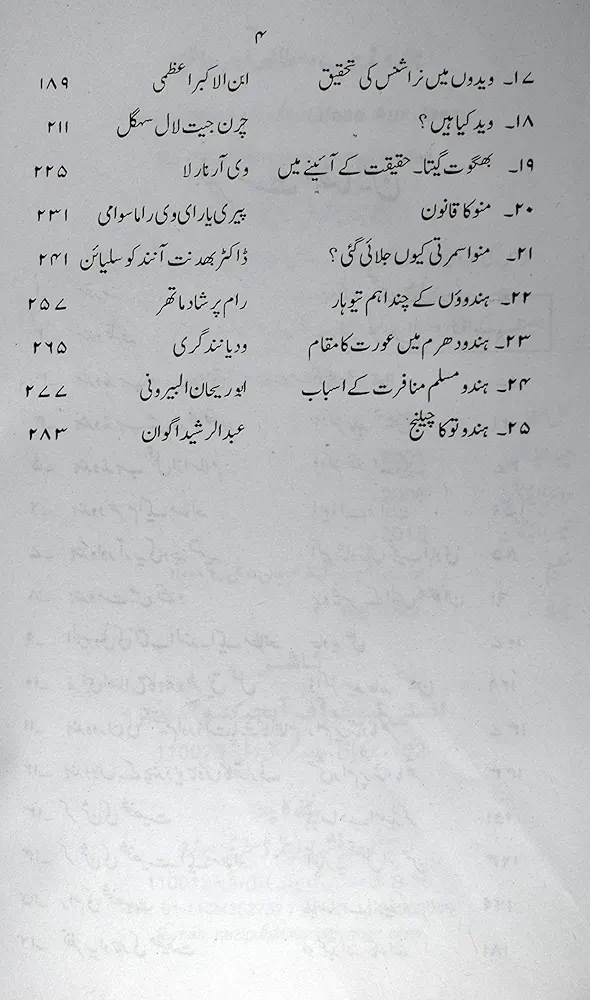 ۴
۱۷۔ ویدوں میں نراشنس کی تحقیق ابن الاکبر اعظمی ۱۸۹
۱۸۔ وید کیا ہیں؟ چرن جیت لال سہگل ۲۱۱
۱۹۔ بھگوت گیتا۔ حقیقت کے آئینے میں وی آر نارلا ۲۲۵
۲۰۔ منو کا قانون پیری یار ای وی راما سوامی ۲۳۱
۲۱۔ منو اسمرتی کیوں جلائی گئی؟ ڈاکٹر بھدنت آنند کوسلیائن ۲۴۱
۲۲۔ ہندوؤں کے چند اہم تیوہار رام پرشاد ماتھر ۲۵۷
۲۳۔ ہندو دھرم میں عورت کا مقام ودیانند گری ۲۶۵
۲۴۔ ہندو مسلم منافرت کے اسباب ابو ریحان البیرونی ۲۷۷
۲۵۔ ہندوتو کا چیلنج عبد الرشید اگوان ۲۸۳